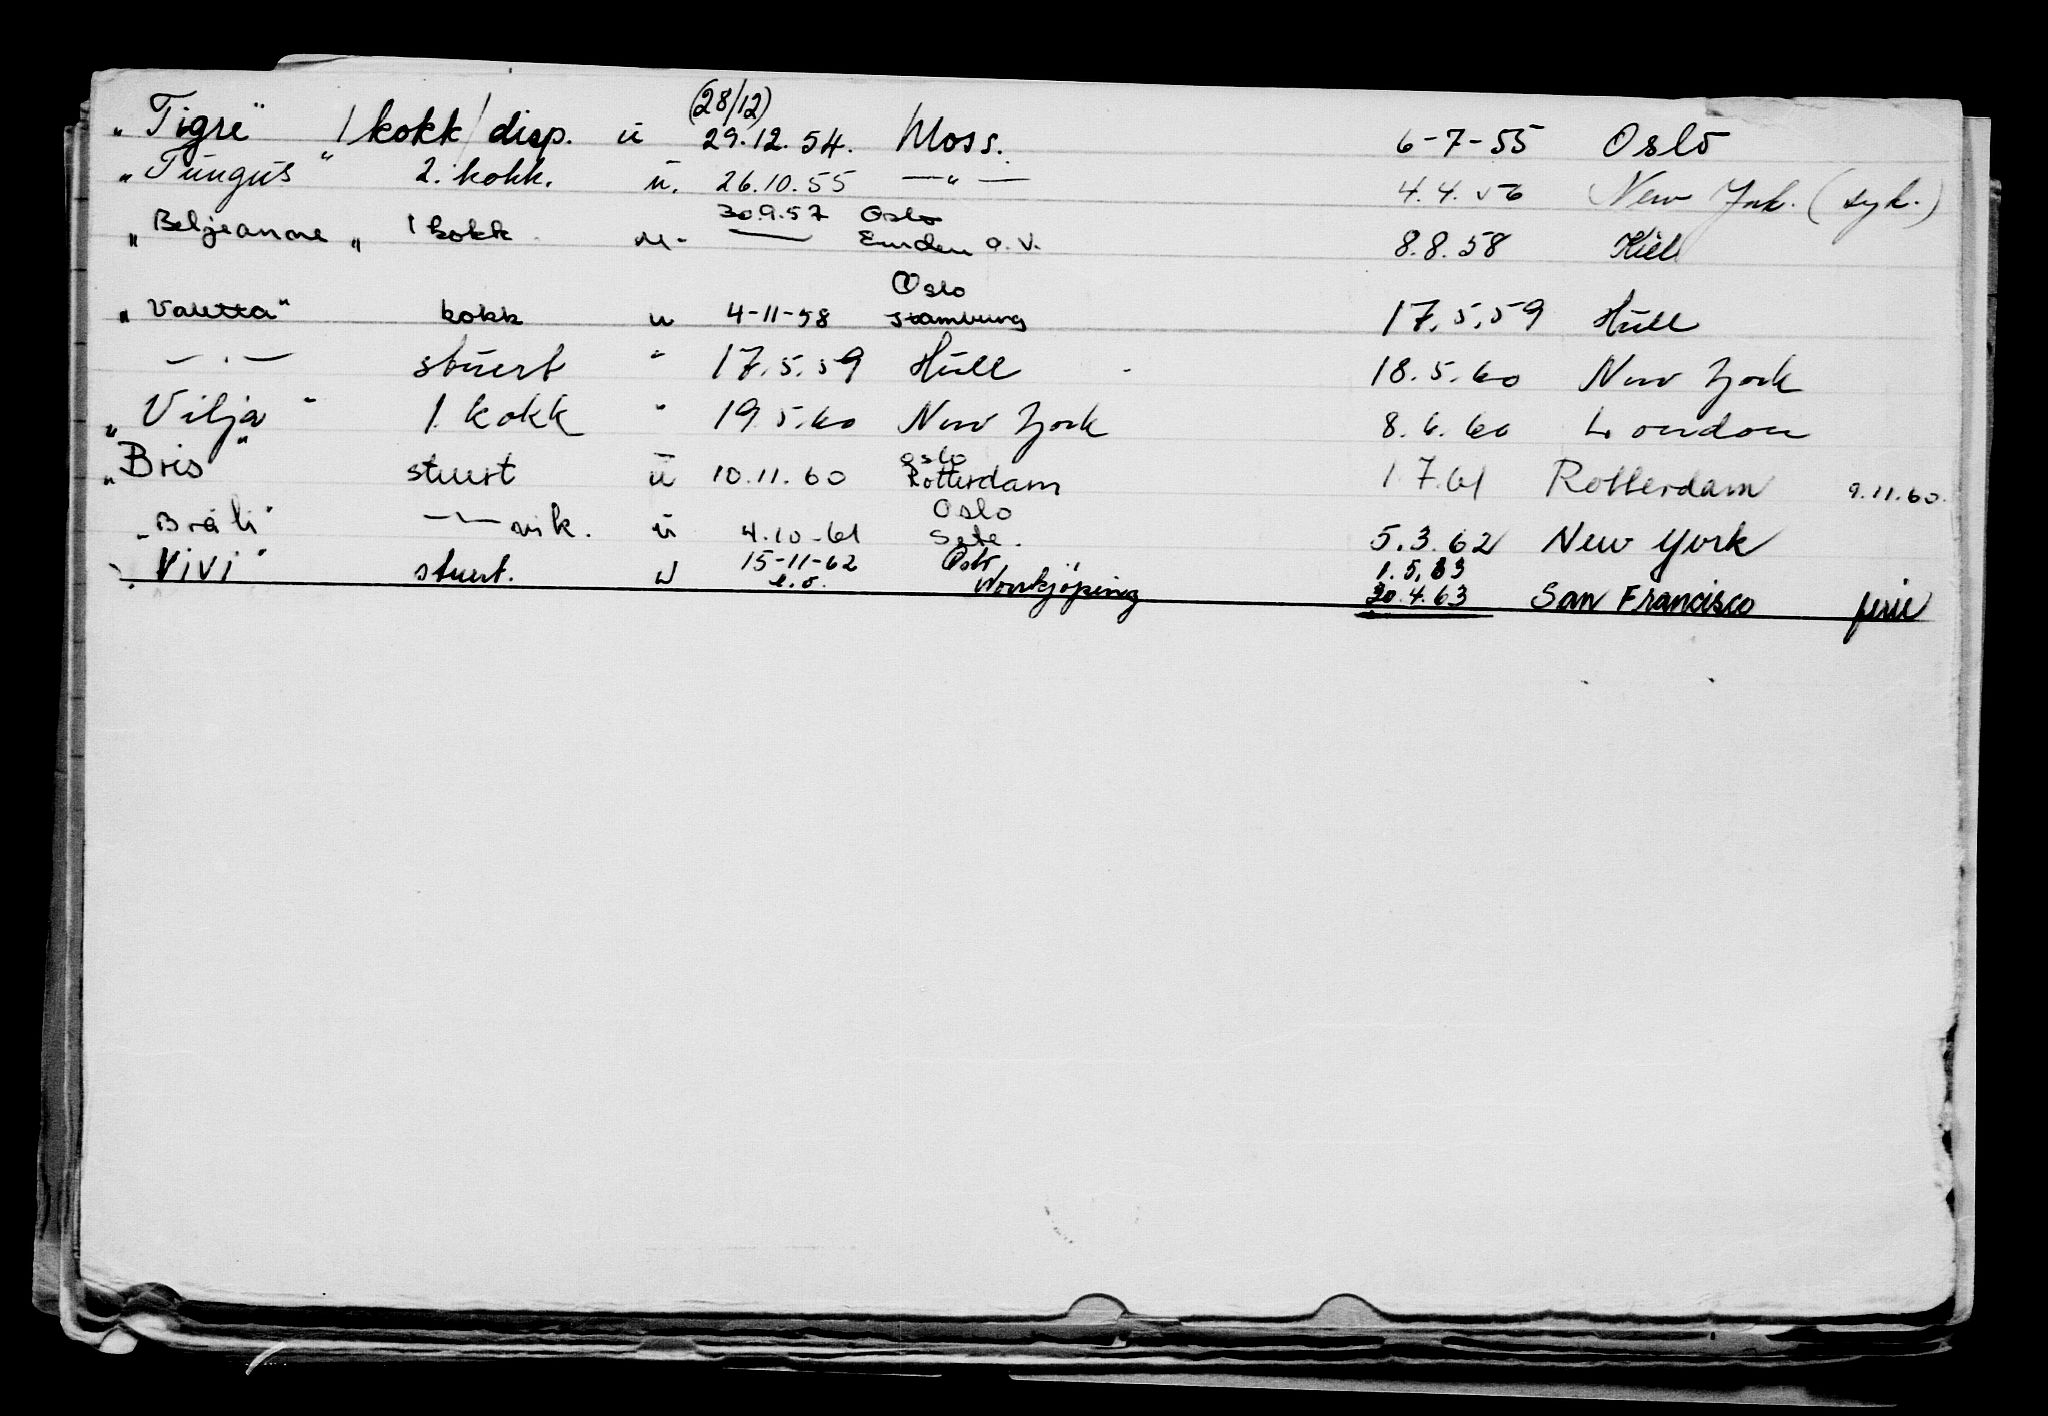 (28/12)
„Tigre" 1 kokk/disp. u 29.12.54. Moss. 6-7-55 Oslo
„Tungus" 2. kokk. u. 26.10.55 —„— 4.4.56 New York. (syk.)
30.9.57 Oslo
„Beljeanne„ 1 kokk u. — Emden a.V. 8.8.58 Kiel
Oslo
„Valetta" kokk u 4-11-58 Hamburg 17.5.59 Hull
—.— stuert " 17.5.59 Hull 18.5.60 New York
„Vilja" 1. kokk " 19.5.60 New York 8.6.60 London
Oslo
„Bris" stuert u 10.11.60 Rotterdam 1.7.61 Rotterdam 9.11.60.
Oslo
„Bråli" —"— vik. u 4.10-61 Sete. 5.3.62 New York
„Vivi" stuert. u 15-11-62 Oslo 1.5.63
Norrkjöping 30.4.63 San Francisco ferie